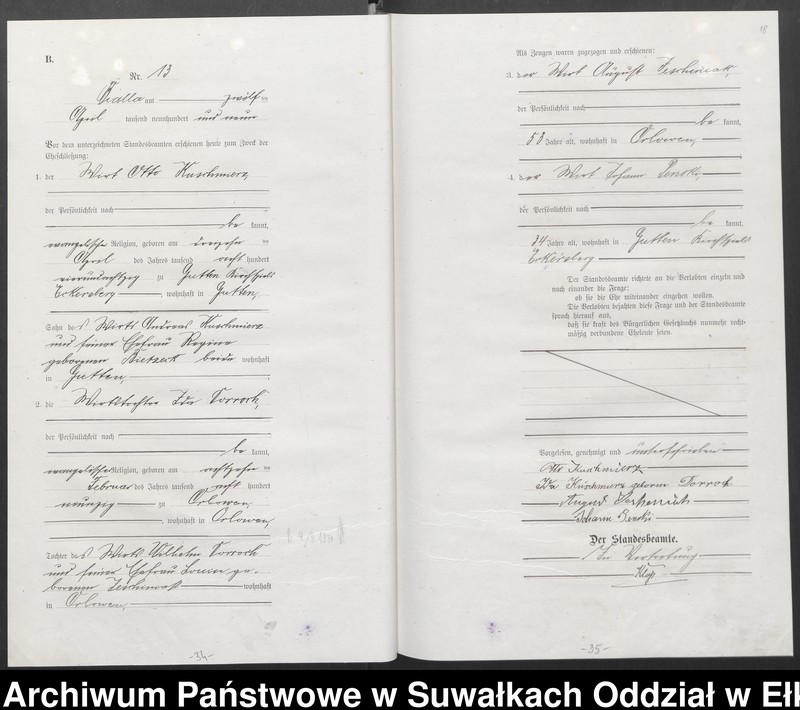 B.
Nr. 13
Bialla am zwölf ten
April tausend neunhundert und neun
Vor dem unterzeichneten Standesbeamten erschienen heute zum Zweck der
Eheschließung:
1. der Wirt Otto Kuschmierz
der Persönlichkeit nach
be kannt,
evangelischer Religion, geboren am dreizehn ten
April des Jahres tausend acht hundert
vierundachtzig zu Gutten Kirchspiels
Eckersberg, wohnhaft in Gutten,
Sohn des Wirts Andreas Kuschmierz
und seiner Ehefrau Regine
geborenen beide wohnhaft
in Gutten,
2. die Wirtstochter Ida Dorroch,
der Persönlichkeit nach
be kannt,
evangelischer Religion, geboren am achtzehn ten
Februar des Jahres tausend acht hundert
neunzig zu Orlowen,
, wohnhaft in Orlowen,
Tochter des Wirts Wilhelm Dorroch
und seiner Ehefrau Louise ge-
borenen wohnhaft
in Orlowen,
-34-
18
Als Zeugen waren zugezogen und erschienen:
3. der Wirt August
der Persönlichkeit nach
be kannt,
53 Jahre alt, wohnhaft in Orlowen,
4. der Wirt Johann
der Persönlichkeit nach
be kannt,
34 Jahre alt, wohnhaft in Gutten Kirchspiels
Eckersberg
Der Standesbeamte richtete an die Verlobten einzeln und
nach einander die Frage:
ob sie die Ehe miteinander eingehen wollen.
Die Verlobten bejahten diese Frage und der Standesbeamte
sprach hierauf aus,
daß sie kraft des Bürgerlichen Gesetzbuchs nunmehr recht-
mäßig verbundene Eheleute seien.
Vorgelesen, genehmigt und unterschrieben
Otto Kuschmierz
Ida Kuschmierz geborene Dorroch
August
Johann
Der Standesbeamte.
In Vertretung
-35-
Archiwum Państwowe w Suwałkach Oddział w Ełk